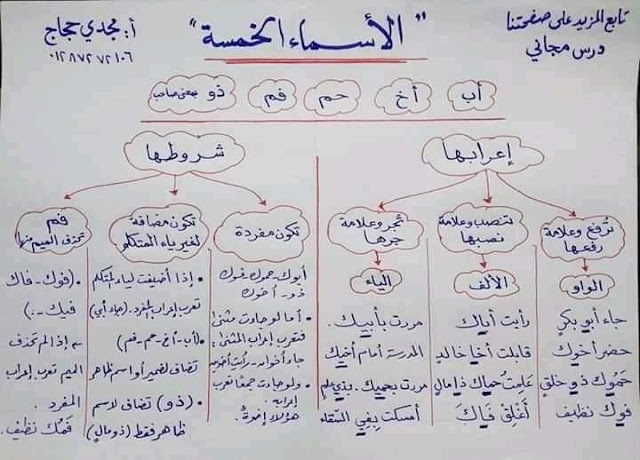 تابع المزيد على صفحتنا
درس مجاني
"الأسماء الخمسة"
أ: مجدي حجاج
٠١٢٨٧٢٧٢١٠٦
أب
أخ
حم
فم
ذو بمعنى صاحب
إعرابها
تُرفع وعلامة
رفعها
الواو
جاء أبو بكرٍ
حضر أخوك
حَمُوك ذو خلقٍ
فوك نظيف
تنصب وعلامة
نصبها
الألف
رأيت أباك
قابلت أخا خالد
علمتُ حماك ذا مالٍ
أَغْلِق فَاكَ
تُجر وعلامة
جرها
الياء
مررت بأبيك.
المدرسة أمام أخيك
مررت بحميك - بذي علم
أمسكت بفي السقاء
شروطها
تكون مفردة
أبوك - حموك - فوك
ذو - أخوك
• أما لو جاءت مثنى
فتعرب إعراب المثنى!
جاء أخوان - رأيت أخوين
• ولو جاءت جمعًا تعرب
إعرابه
هؤلاء إخوةٌ
تكون مضافة
لغير ياء المتكلم
• إذا أضيفت لياء المتكلم
تعرب إعراب المفرد. (جاء أبي)
• (أب - أخ - حم - فم)
تضاف لضمير أو اسم ظاهر
• (ذو) تضاف لاسم
ظاهر فقط (ذو مالٍ)
فم
تحذف الميم منها
• (فوك - فاك
فيك -:)
إذا لم تحذف
الميم تعرب إعراب
المفرد.
فمُك نظيف.